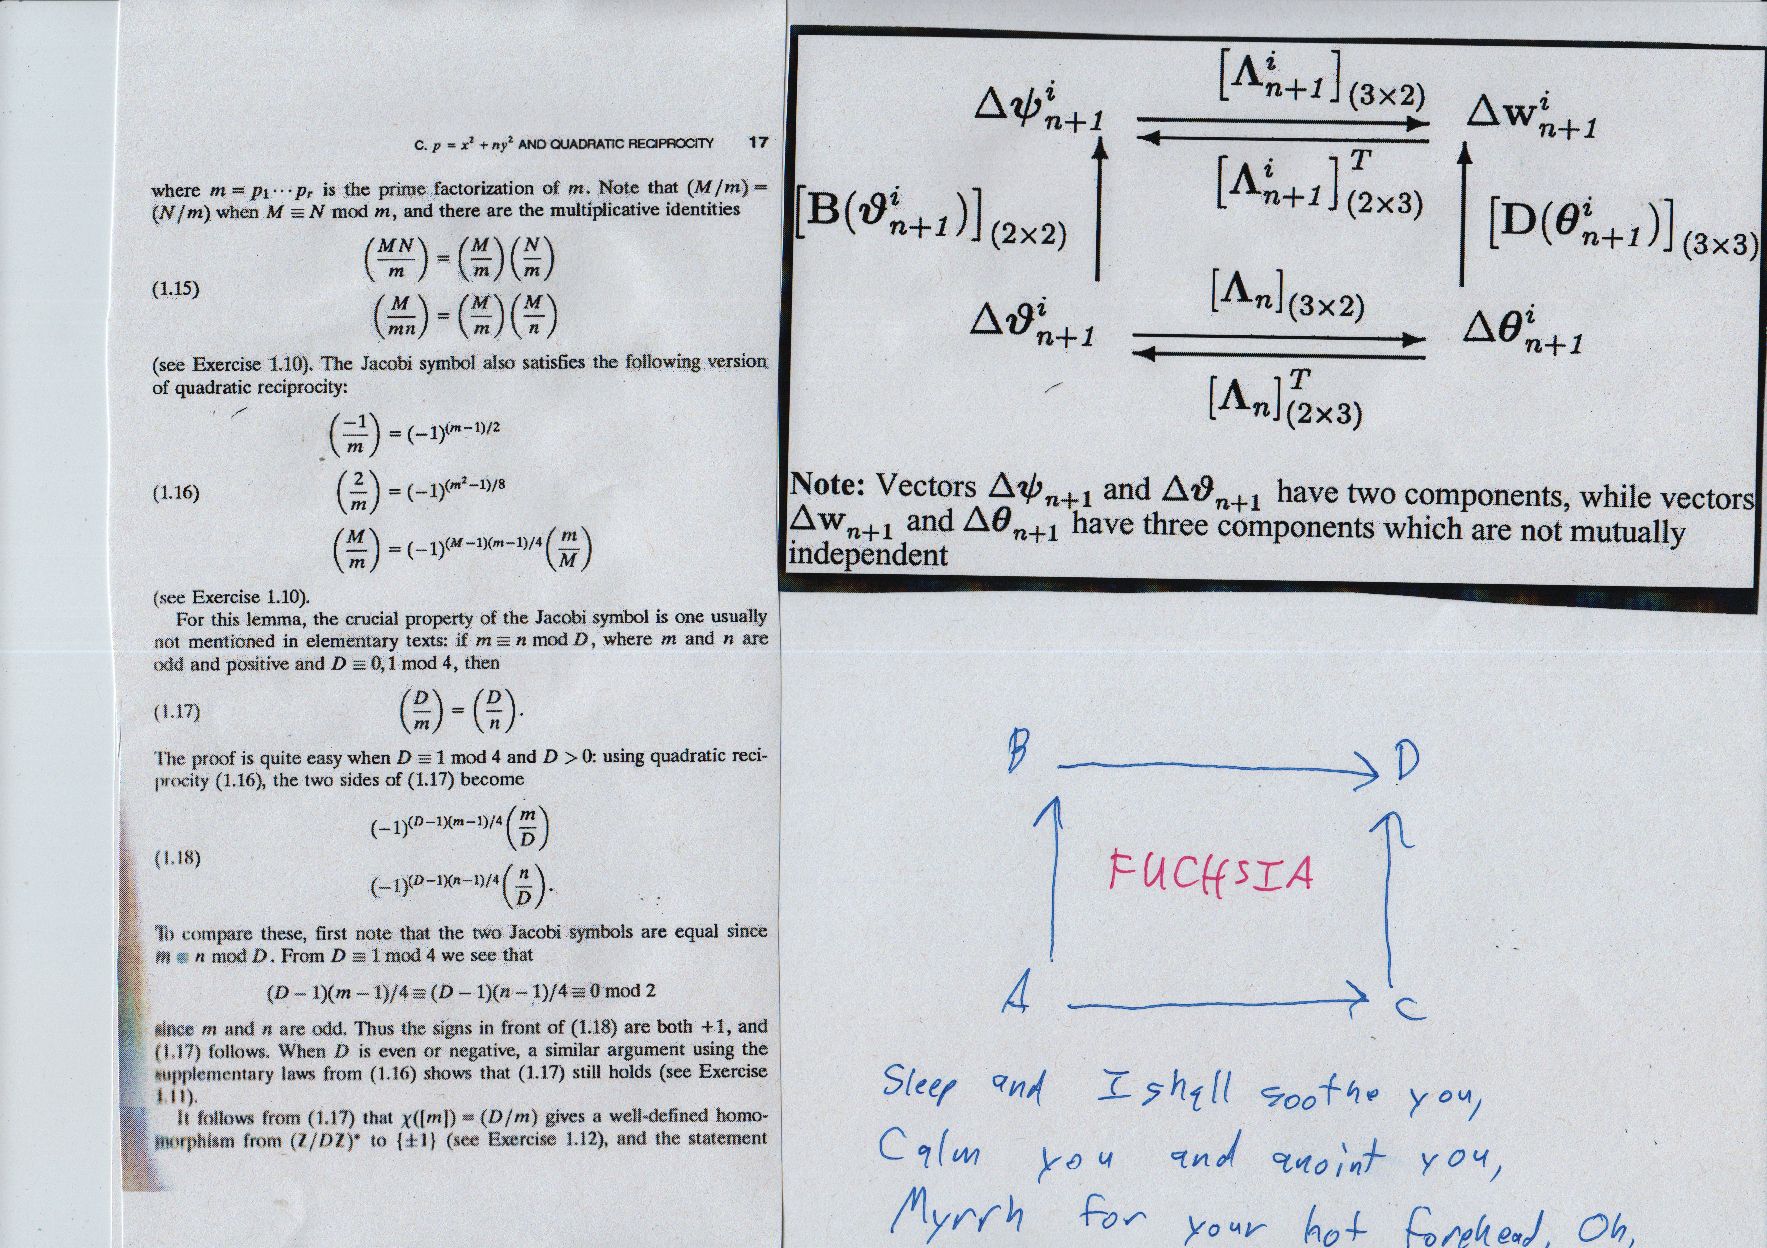 C. p = x² + ny² AND QUADRATIC RECIPROCITY 17
where m = p₁⋯pᵣ is the prime factorization of m. Note that (M/m) =
(N/m) when M ≡ N mod m, and there are the multiplicative identities
(MN/m) = (M/m)(N/m)
(1.15)
(M/mn) = (M/m)(M/n)
(see Exercise 1.10). The Jacobi symbol also satisfies the following version
of quadratic reciprocity:
(−1/m) = (−1)^(m−1)/2
(1.16) (2/m) = (−1)^(m²−1)/8
(M/m) = (−1)^(M−1)(m−1)/4 (m/M)
(see Exercise 1.10).
For this lemma, the crucial property of the Jacobi symbol is one usually
not mentioned in elementary texts: if m ≡ n mod D, where m and n are
odd and positive and D ≡ 0,1 mod 4, then
(1.17) (D/m) = (D/n).
The proof is quite easy when D ≡ 1 mod 4 and D > 0: using quadratic reci-
procity (1.16), the two sides of (1.17) become
(−1)^(D−1)(m−1)/4 (m/D)
(1.18)
(−1)^(D−1)(n−1)/4 (n/D).
To compare these, first note that the two Jacobi symbols are equal since
m ≡ n mod D. From D ≡ 1 mod 4 we see that
(D − 1)(m − 1)/4 ≡ (D − 1)(n − 1)/4 ≡ 0 mod 2
since m and n are odd. Thus the signs in front of (1.18) are both +1, and
(1.17) follows. When D is even or negative, a similar argument using the
supplementary laws from (1.16) shows that (1.17) still holds (see Exercise
1.11).
It follows from (1.17) that χ([m]) = (D/m) gives a well-defined homo-
morphism from (Z/DZ)* to {±1} (see Exercise 1.12), and the statement
Δψ^i_{n+1} [Λ^i_{n+1}]_(3×2) Δw^i_{n+1}
[Λ^i_{n+1}]^T_(2×3)
[B(ϑ^i_{n+1})]_(2×2) [D(θ^i_{n+1})]_(3×3)
Δϑ^i_{n+1} [Λ_n]_(3×2) Δθ^i_{n+1}
[Λ_n]^T_(2×3)
Note: Vectors Δψ_{n+1} and Δϑ_{n+1} have two components, while vectors
Δw_{n+1} and Δθ_{n+1} have three components which are not mutually
independent
B D
FUCHSIA
A C
Sleep and I shall soothe you,
Calm you and anoint you,
Myrrh for your hot forehead, Oh,